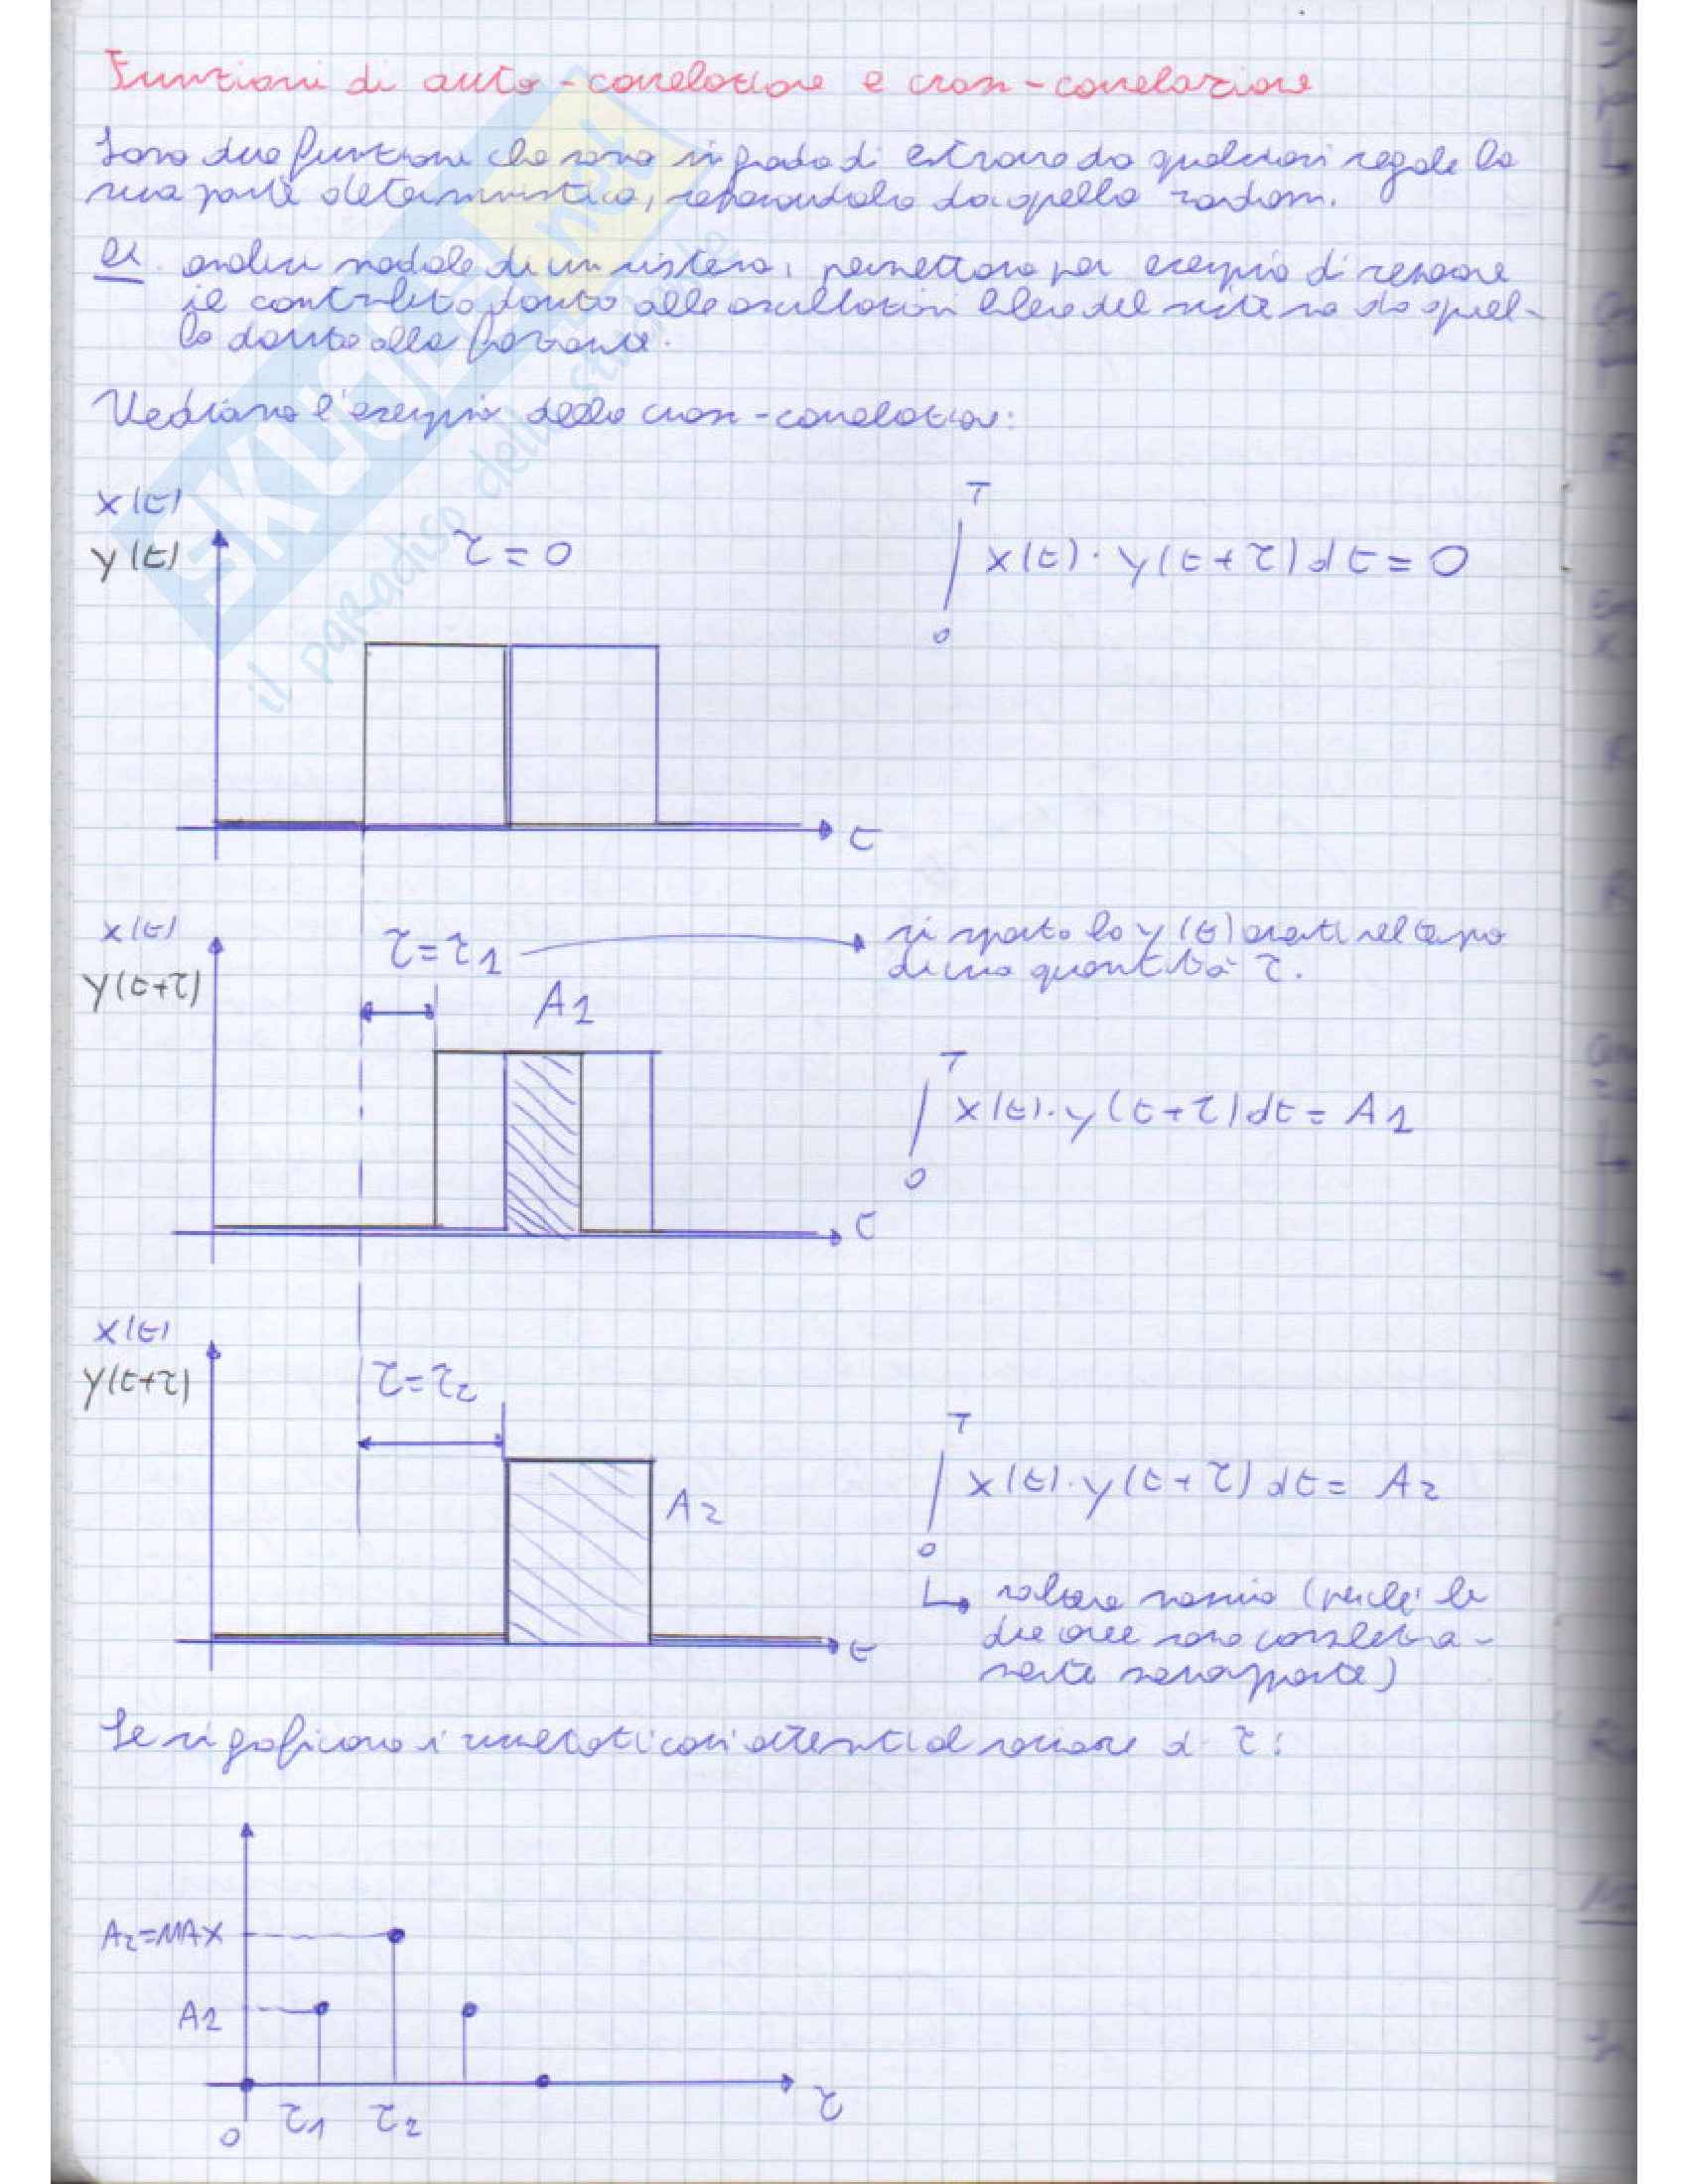 Funzioni di auto-correlazione e cross-correlazione
Sono due funzioni che sono in grado di estrarre da qualsiasi segnale la
sua parte deterministica, separandola da quella random.
es. analisi modale di un sistema, permettono per esempio di separare
il contributo dovuto alle oscillazioni libere del sistema da quel-
lo dovuto alla forzante.
Vediamo l'esempio della cross-correlazione:
x(t)
y(t)
τ = 0
∫ 0 T x(t) · y(t+τ) dt = 0
t
x(t)
y(t+τ)
τ = τ1
si sposta la y(t) avanti nel tempo
di una quantità τ.
A1
∫ 0 T x(t) · y(t+τ) dt = A1
t
x(t)
y(t+τ)
τ = τ2
A2
∫ 0 T x(t) · y(t+τ) dt = A2
↳ valore massimo (perché le
due aree sono completa-
mente sovrapposte)
t
Se si graficano i risultati così ottenuti al variare di τ:
A2=MAX
A1
0 τ1 τ2 τ
SKUOLA.net
il paradiso dello studente